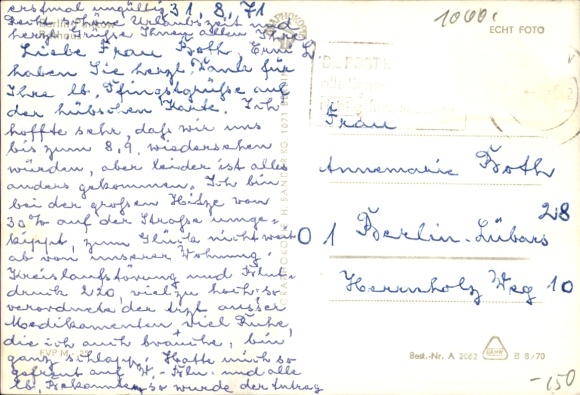 erstmal ungültig 31.8.71
schöne Urlaubszeit und
herzl. Grüße Ihnen allen Ihre
Liebe Frau Both, Erni L
haben Sie herzl. Dank für
Ihre lb. Pfingstgrüße auf
der hübschen Karte. Ich
hoffte sehr, daß wir uns
bis zum 8.9. wiedersehen
würden, aber leider ist alles
anders gekommen. Ich bin
bei der großen Hitze von
30° auf der Straße umge-
kippt, zum Glück nicht weit
ab von unserer Wohnung.
Kreislaufstörung und Blut-
druck 220, viel zu hoch. so
verordnete der Arzt ausser
Medikamenten, viel Ruhe,
die ich auch brauche, bin
ganz schlapp. Hatte mich so
gefreut auf W.- und alle
lb. Bekannten, so wurde der Antrag
1000
ECHT FOTO
Frau
Annemarie Both
28
01 Berlin-Lübars
Herrnholz Weg 10
Best.-Nr. A 2062
B 8/70
-150